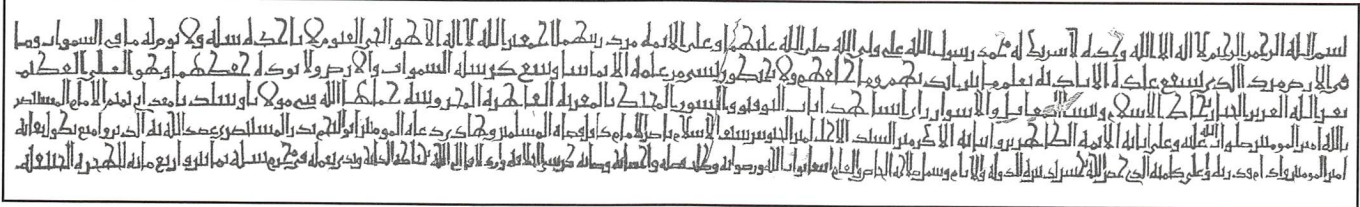 بسم الله الرحمن الرحيم لا اله الا الله وحده لا شريك له محمد رسول الله علي ولي الله صلى الله عليهما وعلى الائمه من ذريتهما اجمعين الله لا اله الا هو الحي القيوم لا تاخذه سنه ولا نوم له ما في السموات وما
في الارض من ذا الذي يشفع عنده الا باذنه يعلم ما بين ايديهم وما خلفهم ولا يحيطون بشي من علمه الا بما شا وسع كرسيه السموات والارض ولا يوده حفظهما وهو العلي العظيم
بعز الله العزيز الجبار يحاط الاسلام وتنشا المعاقل والاسوار انشا هذا باب التوفيق والسور المحيط بالمعزيه القاهره المحروسه حماها الله فتى مولانا وسيدنا معد ابي تميم الامام المستنصر
بالله امير المومنين صلوات الله عليه وعلى ابائه الائمه الطاهرين وابنائه الاكرمين السيد الاجل امير الجيوش سيف الاسلام ناصر الامام كافل قضاه المسلمين وهادي دعاه المومنين ابو النجم بدر المستنصري عضد الله به الدين وامتع بطول بقائه
امير المومنين وادام قدرته واعلى كلمته الذي حصن الله بحسن تدبيره الدوله والانام وشمل صلاحه الخاص والعام ابتغا ثواب الله ورضوانه وطلب فضله واحسانه وصيانه كرسي الخلافه وازدلافا الى الله بحياطه الكافه وبدي بعمله في محرم سنه ثمانين واربع مائه للهجره الحنيفيه